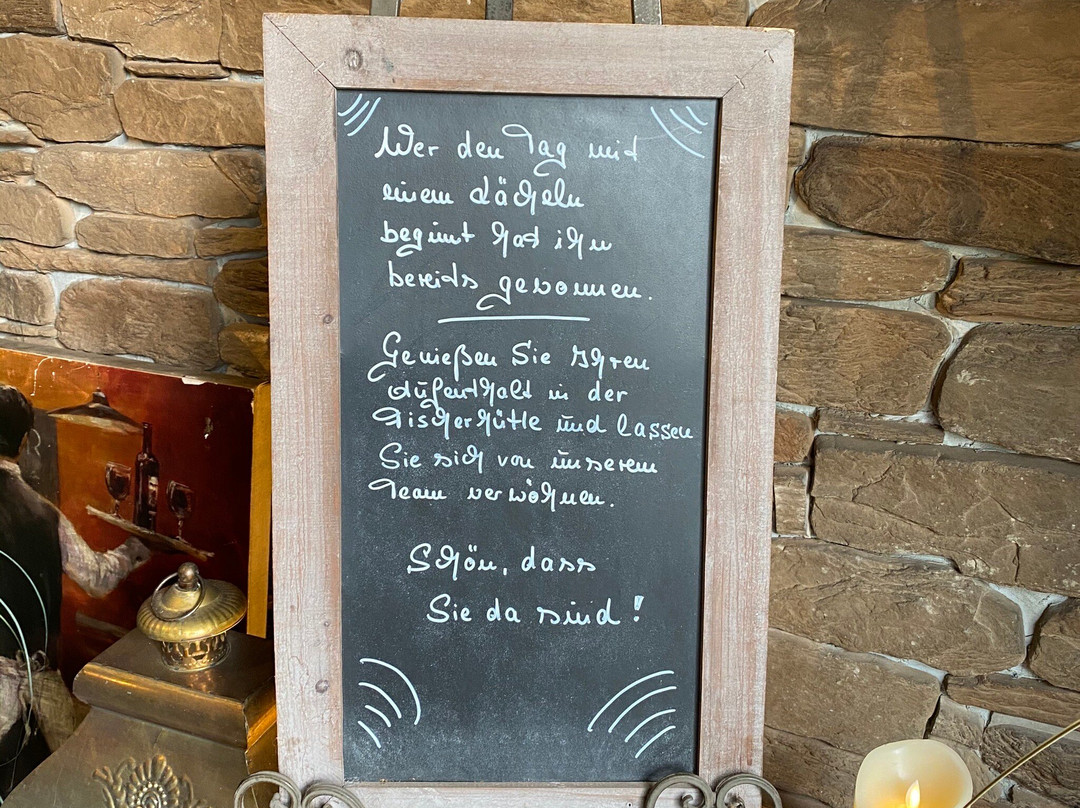 Wer den Tag mit
einem Lächeln
beginnt hat ihn
bereits gewonnen.
Genießen Sie Ihren
Aufenthalt in der
Fischerhütte und lassen
Sie sich von unserem
Team verwöhnen.
Schön, dass
Sie da sind!